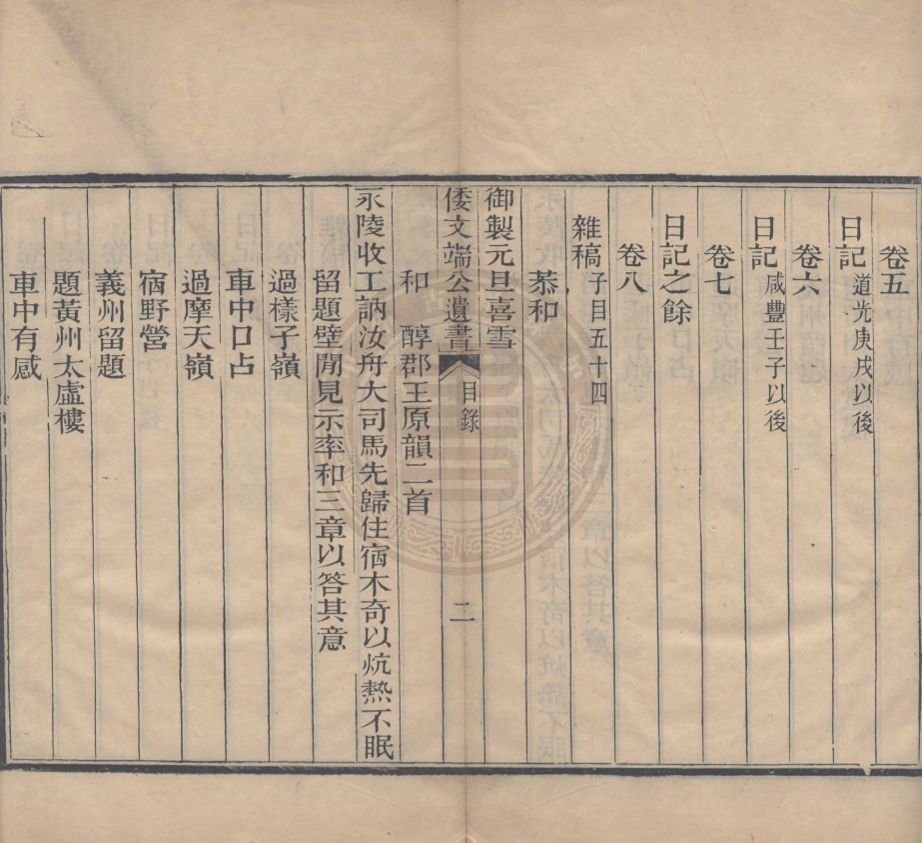 卷五
日記 道光庚戌以後
卷六
日記 咸豐壬子以後
卷七
日記之餘
卷八
雜稿 子目五十四
恭和
御製元旦喜雪
倭文端公遺書 目錄 二
和 醇郡王原韻二首
永陵收工訥汝舟大司馬先歸住宿木奇以炕熱不眠
留題壁閒見示率和三章以答其意
過樣子嶺
車中口占
過摩天嶺
宿野營
義州留題
題黃州太虛樓
車中有感